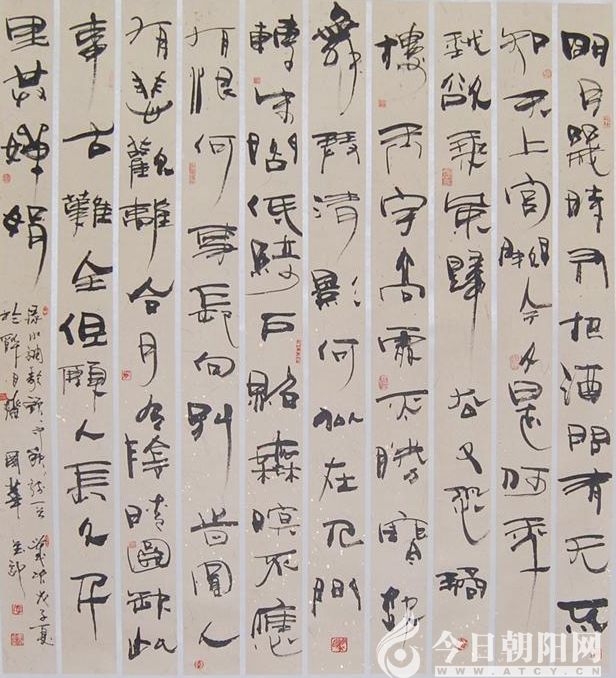 明月幾時有把酒問青天不
知天上宮闕今夕是何年
我欲乘風歸去又恐瓊
樓玉宇高處不勝寒起
舞弄清影何似在人間
轉朱閣低綺戶照無眠不應
有恨何事長向別時圓人
有悲歡離合月有陰晴圓缺此
事古難全但願人長久千
里共嬋娟
水調歌頭 戊子夏
於 月 國華
今日朝阳网
WWW.ATCY.CN